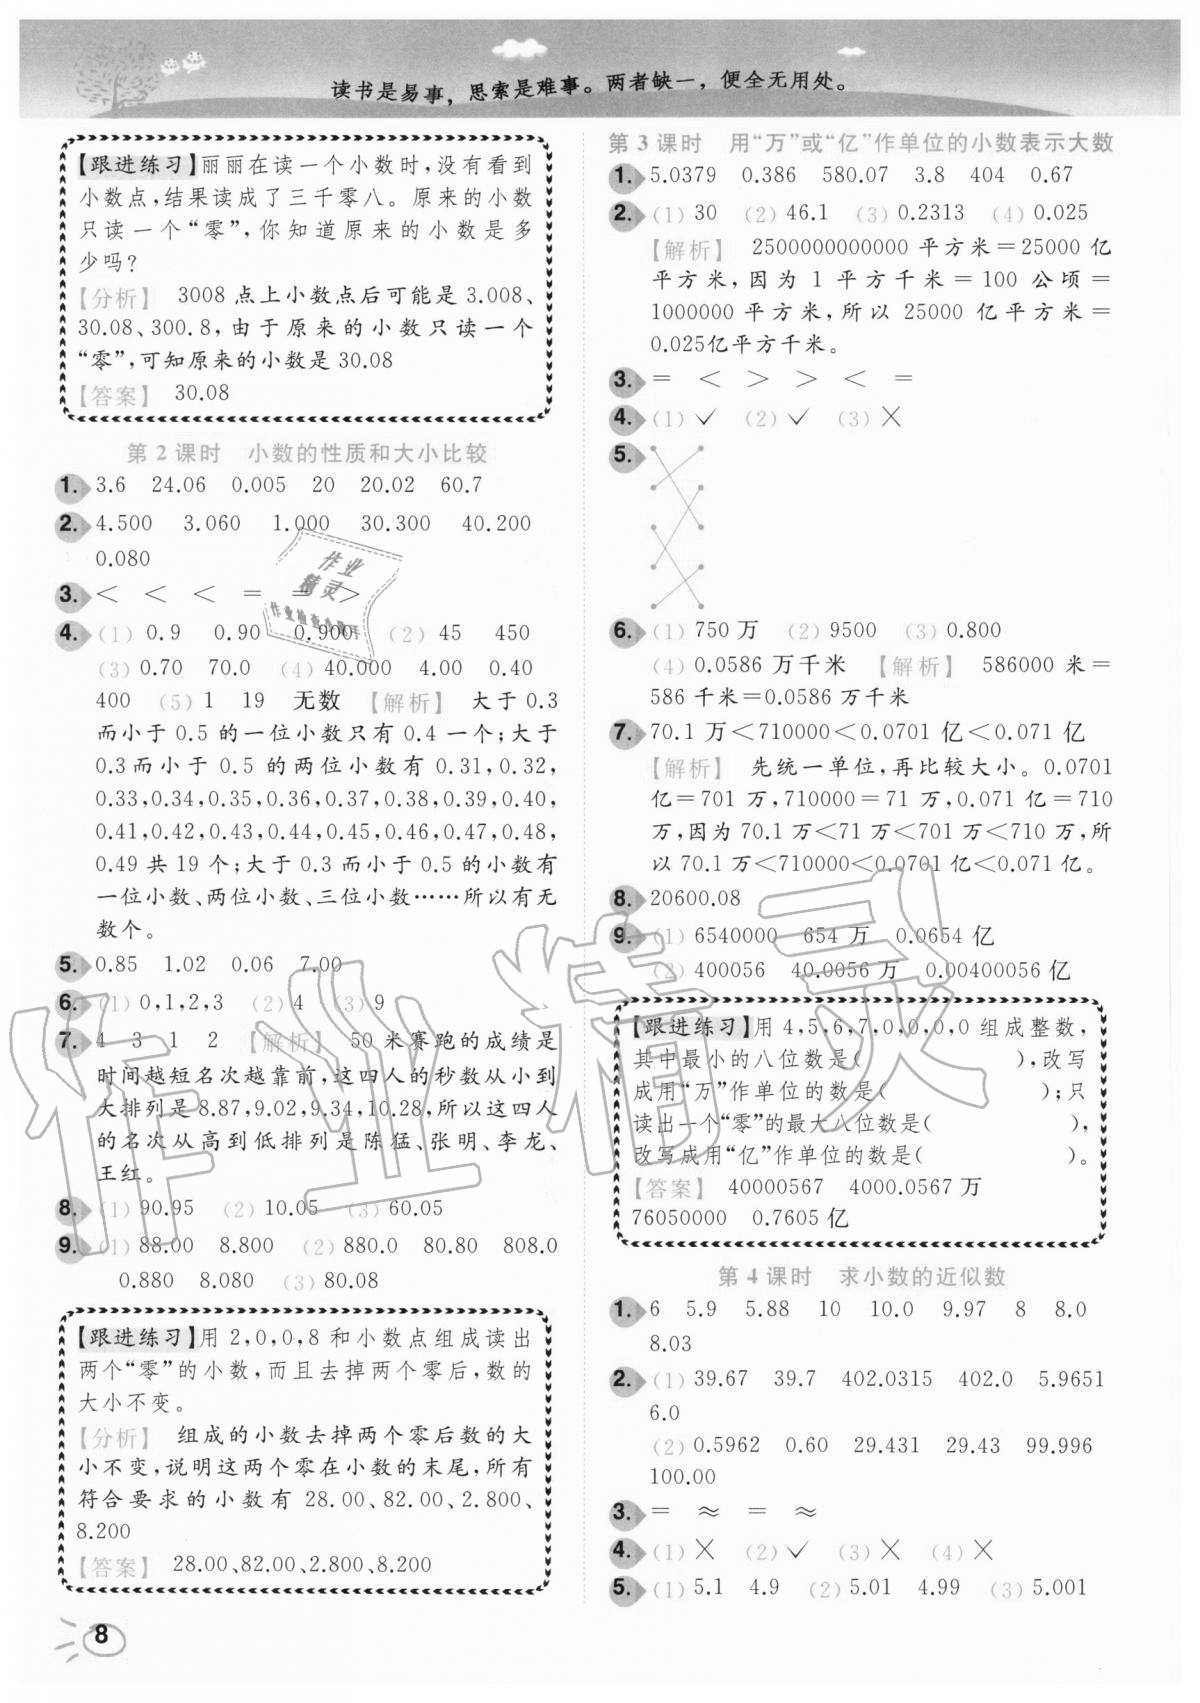 读书是易事，思索是难事。两者缺一，便全无用处。
【跟进练习】丽丽在读一个小数时，没有看到
小数点，结果读成了三千零八。原来的小数
只读一个“零”，你知道原来的小数是多
少吗？
【分析】 3008点上小数点后可能是3.008、
30.08、300.8，由于原来的小数只读一个
“零”，可知原来的小数是30.08
【答案】 30.08
第2课时 小数的性质和大小比较
1. 3.6 24.06 0.005 20 20.02 60.7
2. 4.500 3.060 1.000 30.300 40.200
0.080
3. ＜ ＜ ＜ ＝ ＝ ＞
4. (1) 0.9 0.90 0.900 (2) 45 450
(3) 0.70 70.0 (4) 40.000 4.00 0.40
400 (5) 1 19 无数 【解析】 大于0.3
而小于0.5的一位小数只有0.4一个；大于
0.3而小于0.5的两位小数有0.31,0.32,
0.33,0.34,0.35,0.36,0.37,0.38,0.39,0.40,
0.41,0.42,0.43,0.44,0.45,0.46,0.47,0.48,
0.49共19个；大于0.3而小于0.5的小数有
一位小数、两位小数、三位小数……所以有无
数个。
5. 0.85 1.02 0.06 7.00
6. (1) 0,1,2,3 (2) 4 (3) 9
7. 4 3 1 2 【解析】 50米赛跑的成绩是
时间越短名次越靠前，这四人的秒数从小到
大排列是8.87,9.02,9.34,10.28，所以这四人
的名次从高到低排列是陈猛、张明、李龙、
王红。
8. (1) 90.95 (2) 10.05 (3) 60.05
9. (1) 88.00 8.800 (2) 880.0 80.80 808.0
0.880 8.080 (3) 80.08
【跟进练习】用2,0,0,8和小数点组成读出
两个“零”的小数，而且去掉两个零后，数的
大小不变。
【分析】 组成的小数去掉两个零后数的大
小不变，说明这两个零在小数的末尾，所有
符合要求的小数有28.00、82.00、2.800、
8.200
【答案】 28.00,82.00,2.800,8.200
8
第3课时 用“万”或“亿”作单位的小数表示大数
1. 5.0379 0.386 580.07 3.8 404 0.67
2. (1) 30 (2) 46.1 (3) 0.2313 (4) 0.025
【解析】 2500000000000平方米＝25000亿
平方米，因为1平方千米＝100公顷＝
1000000平方米，所以25000亿平方米＝
0.025亿平方千米。
3. ＝ ＜ ＞ ＞ ＜ ＝
4. (1) ✓ (2) ✓ (3) ✕
5.
6. (1) 750万 (2) 9500 (3) 0.800
(4) 0.0586万千米 【解析】 586000米＝
586千米＝0.0586万千米
7. 70.1万＜710000＜0.0701亿＜0.071亿
【解析】 先统一单位，再比较大小。0.0701
亿＝701万，710000＝71万，0.071亿＝710
万，因为70.1万＜71万＜701万＜710万，所
以70.1万＜710000＜0.0701亿＜0.071亿。
8. 20600.08
9. (1) 6540000 654万 0.0654亿
(2) 400056 40.0056万 0.00400056亿
【跟进练习】用4,5,6,7,0,0,0,0组成整数，
其中最小的八位数是（ ），改写
成用“万”作单位的数是（ ）；只
读出一个“零”的最大八位数是（ ），
改写成用“亿”作单位的数是（ ）。
【答案】 40000567 4000.0567万
76050000 0.7605亿
第4课时 求小数的近似数
1. 6 5.9 5.88 10 10.0 9.97 8 8.0
8.03
2. (1) 39.67 39.7 402.0315 402.0 5.9651
6.0
(2) 0.5962 0.60 29.431 29.43 99.996
100.00
3. ＝ ≈ ＝ ≈
4. (1) ✕ (2) ✓ (3) ✕ (4) ✕
5. (1) 5.1 4.9 (2) 5.01 4.99 (3) 5.001
作业精灵
作业
精灵